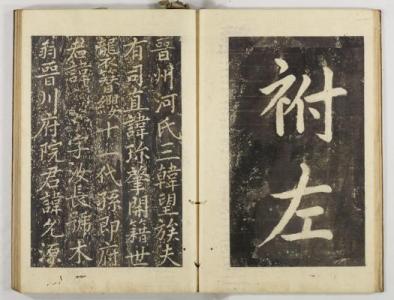 祔左
晉州河氏三韓望族夫
有司直諱珍肇開籍世
襲簪纓十一代孫即府
君諱 字汝長號木
翁晉川府院君諱允源